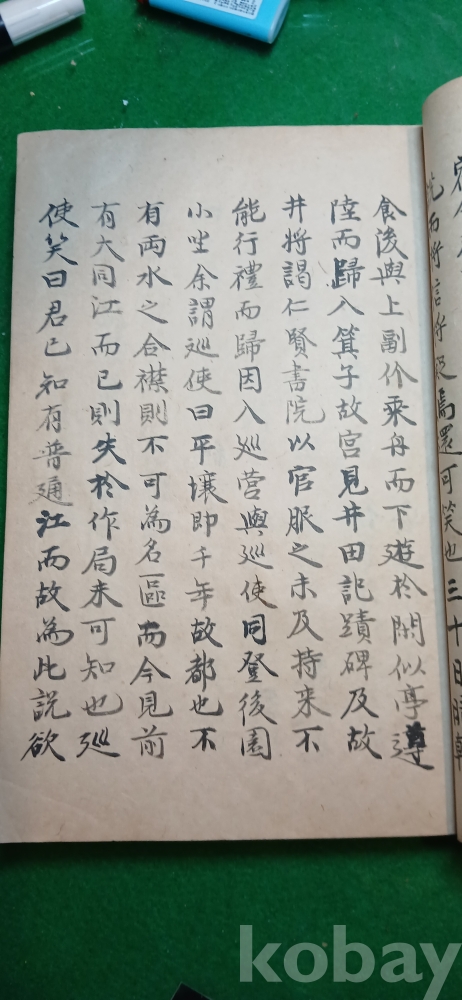 焉還可笑也三十日晴朝
食後與上副价乘舟而下遊於閑似亭遵
陸而歸入箕子故宮見井田記蹟碑及故
井將謁仁賢書院以官服之未及持来不
能行禮而歸因入巡營與巡使同登後園
小坐余謂巡使曰平壤即千年故都也不
有両水之合襟則不可為名區而今見前
有大同江而已則失於作局来可知也巡
使笑曰君已知有普通江而故為此說欲
kobay